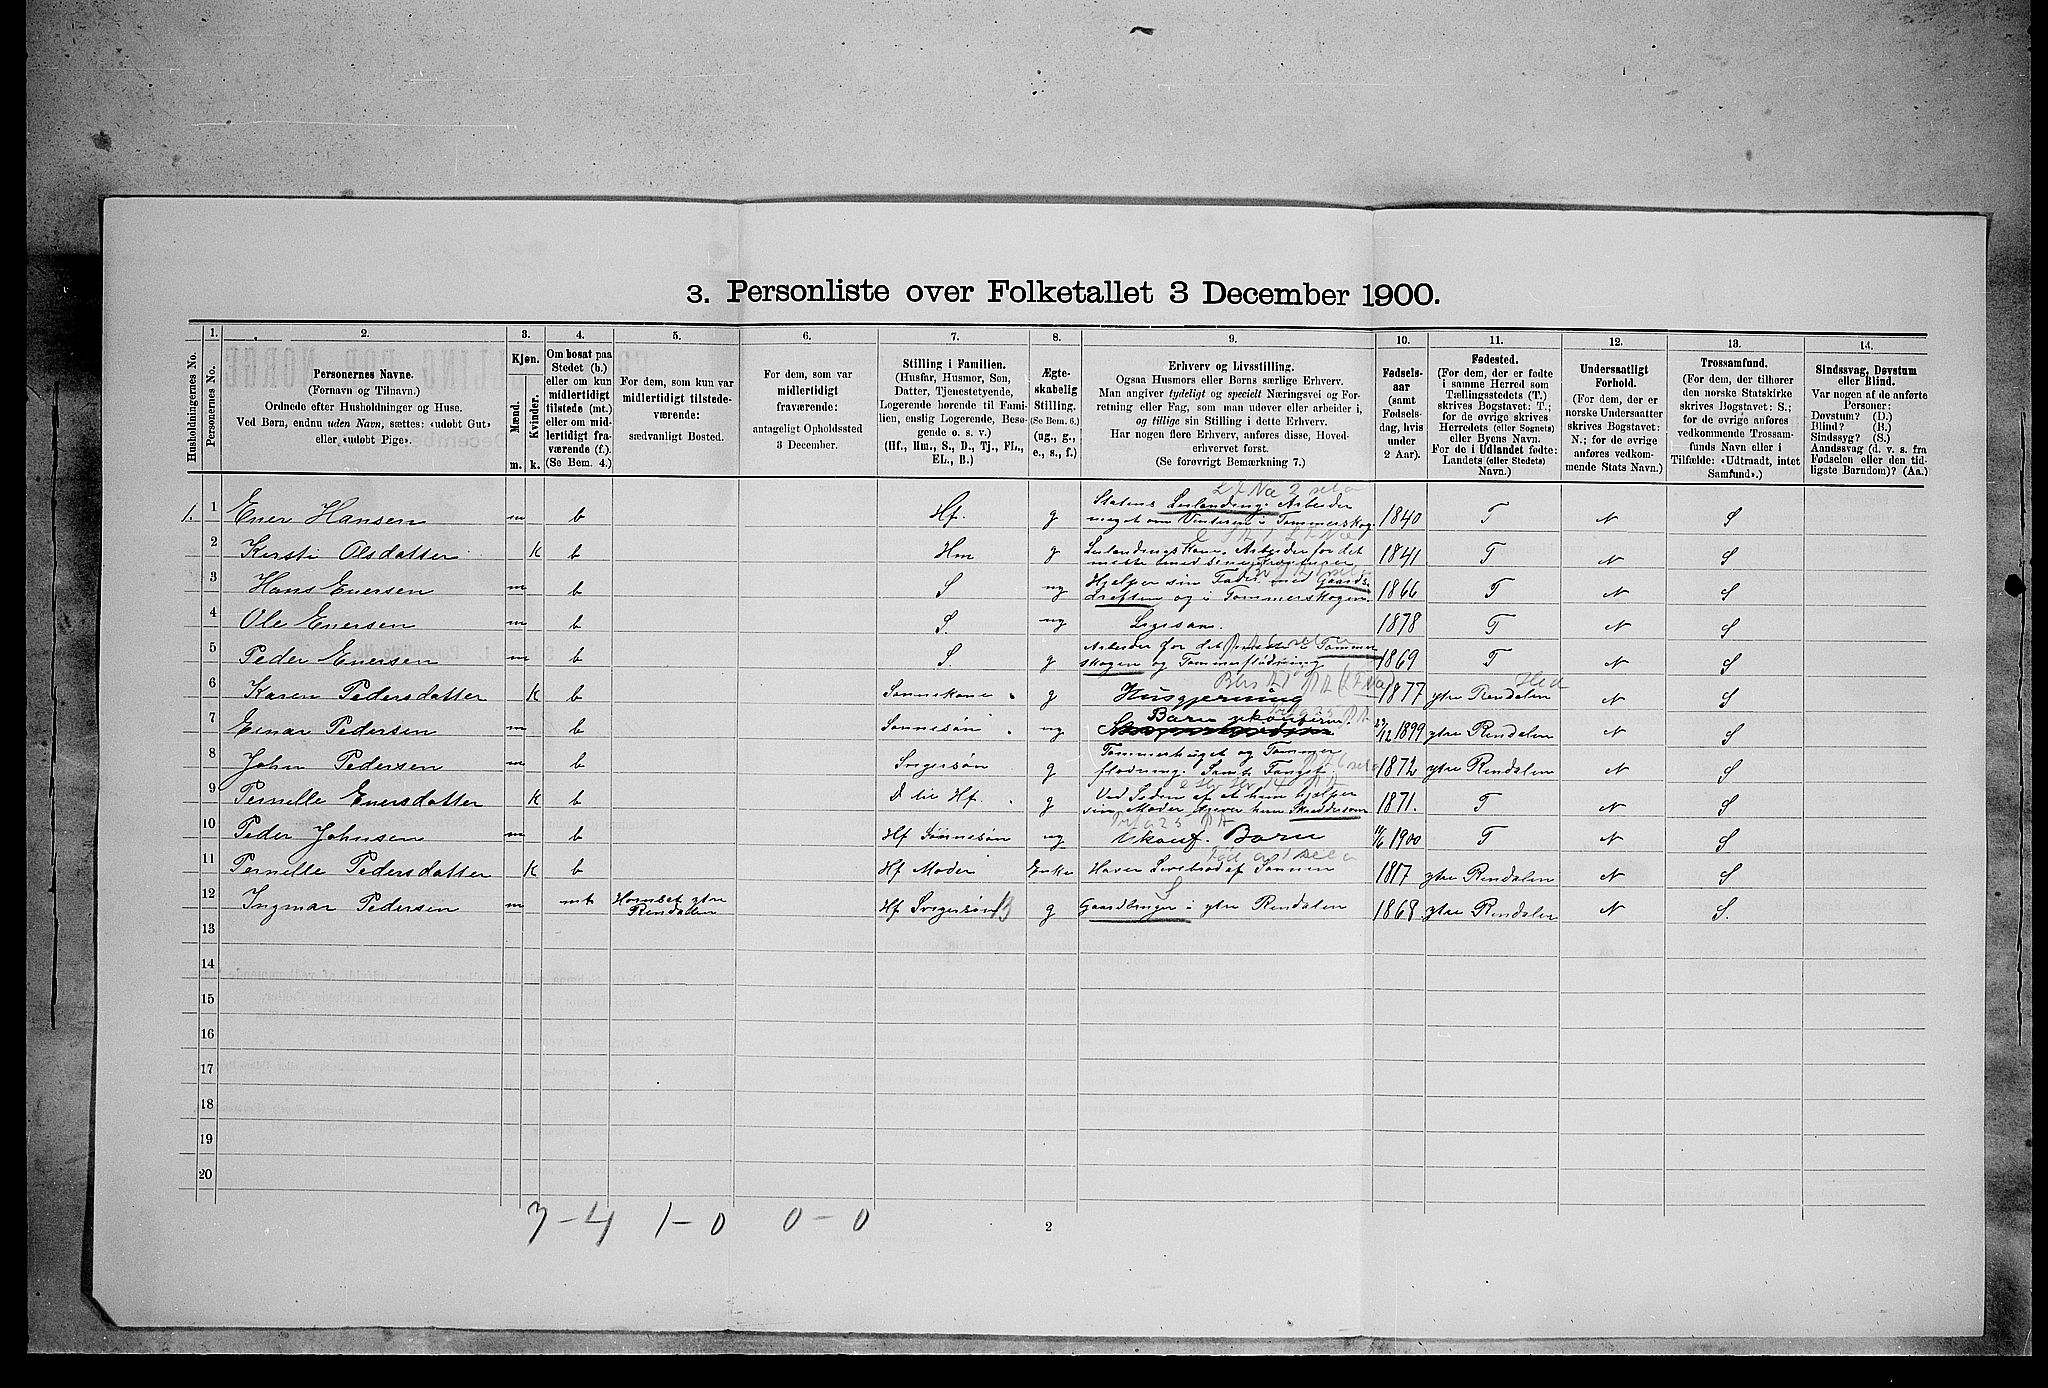 3. Personliste over Folketallet 3 December 1900.
Husholdningernes No.
1.
Personernes No.
2.
Personernes Navne.
(Fornavn og Tilnavn.)
Ordnede efter Husholdninger og Huse.
Ved Børn, endnu uden Navn, sættes: «udobt Gut»
eller «udobt Pige».
3.
Kjøn.
Mænd.
Kvinder.
m.
k.
4.
Om bosat paa
Stedet (b.)
eller om kun
midlertidigt
tilstede (mt.)
eller om mid-
lertidigt fra-
værende (f.).
(Se Bem. 4.)
5.
For dem, som kun var
midlertidigt tilstede-
værende:
sædvanligt Bosted.
6.
For dem, som var
midlertidigt
fraværende:
antageligt Opholdssted
3 December.
7.
Stilling i Familien.
(Husfar, Husmor, Søn,
Datter, Tjenestetyende,
Logerende hørende til Fami-
lien, enslig Logerende, Besø-
gende o. s. v.)
(Hf., Hm., S., D., Tj., FL.,
EL., B.)
8.
Ægte-
skabelig
Stilling.
(Se Bem. 6.)
(ug., g.,
e., s., f.)
9.
Erhverv og Livsstilling.
Ogsaa Husmors eller Børns særlige Erhverv.
Man angiver tydeligt og specielt Næringsvei og For-
retning eller Fag, som man udøver eller arbeider i,
og tillige sin Stilling i dette Erhverv.
Har nogen flere Erhverv, anføres disse, Hoved-
erhvervet først.
(Se forøvrigt Bemærkning 7.)
10.
Fødsels-
aar
(samt
Fødsels-
dag, hvis
under
2 Aar).
11.
Fødested.
(For dem, der er fødte
i samme Herred som
Tællingsstedets (T.)
skrives Bogstavet: T.;
for de øvrige skrives
Herredets (eller Sognets)
eller Byens Navn.
For de i Udlandet fødte:
Landets (eller Stedets)
Navn.)
12.
Undersaatligt
Forhold.
(For dem, der er
norske Undersaatter
skrives Bogstavet:
N.; for de øvrige
anføres vedkom-
mende Stats Navn.)
13.
Trossamfund.
(For dem, der tilhører
den norske Statskirke
skrives Bogstavet: S.;
for de øvrige anføres
vedkommende Trossam-
funds Navn eller i
Tilfælde: «Udtraadt, intet
Samfund».)
14.
Sindssvag, Døvstum
eller Blind.
Var nogen af de anførte
Personer:
Døvstum? (D.)
Blind? (B.)
Sindssyg? (S.)
Aandssvag (d. v. s. fra
Fødselen eller den tid-
ligste Barndom)? (Aa.)
1. 1 Ener Hansen m b Hf. g Statens Leilænding. Arbeider
meget om Vinteren i Tømmerskog. 1840 T N S
2 Kersti Olsdatter k b Hm g Leilændingskone. Arbeider for det
meste med 1841 T N S
3 Hans Enersen m b S ug Hjælper sin Fader med Gaards-
driften og i Tømmerskogen 1866 T N S
4 Ole Enersen m b S. ug Ligesaa. 1878 T N S
5 Peder Enersen m b S. g Arbeider for det meste i Tømmer
skogen og Tømmerflødning 1869 T N S
6 Karen Pedersdatter k b Sønnekone g Husgjerning 1877 ytre Rendalen Hed N S
7 Einar Pedersen m b Sønnesøn ug Barn 1899 ytre Rendalen N S
8 John Pedersen m b Svigersøn g Tømmerhuget og Tømmer
flødning. Samt Fangst. 1872 ytre Rendalen N S
9 Pernille Enersdatter k b D til Hf. g Ved Siden af at hun hjælper
sin Moder driver hun Skræddersøm 1871. T N S
10 Peder Johnsen m b Hf Sønnesøn ug Ukonf. Barn 1900 T N S
11 Pernille Pedersdatter k b Hf Moder Enke Haver Livebrød af Sønnen 1817 ytre Rendalen N S
12 Ingmar Pedersen m mt Hornset ytre
Rendalen Hf Svigersøn B g Gaardbruger i ytre Rendalen 1868. ytre Rendalen N S.
13
14
15
16
17
18
19
20
7 - 4 1 - 0 0 - 0
2